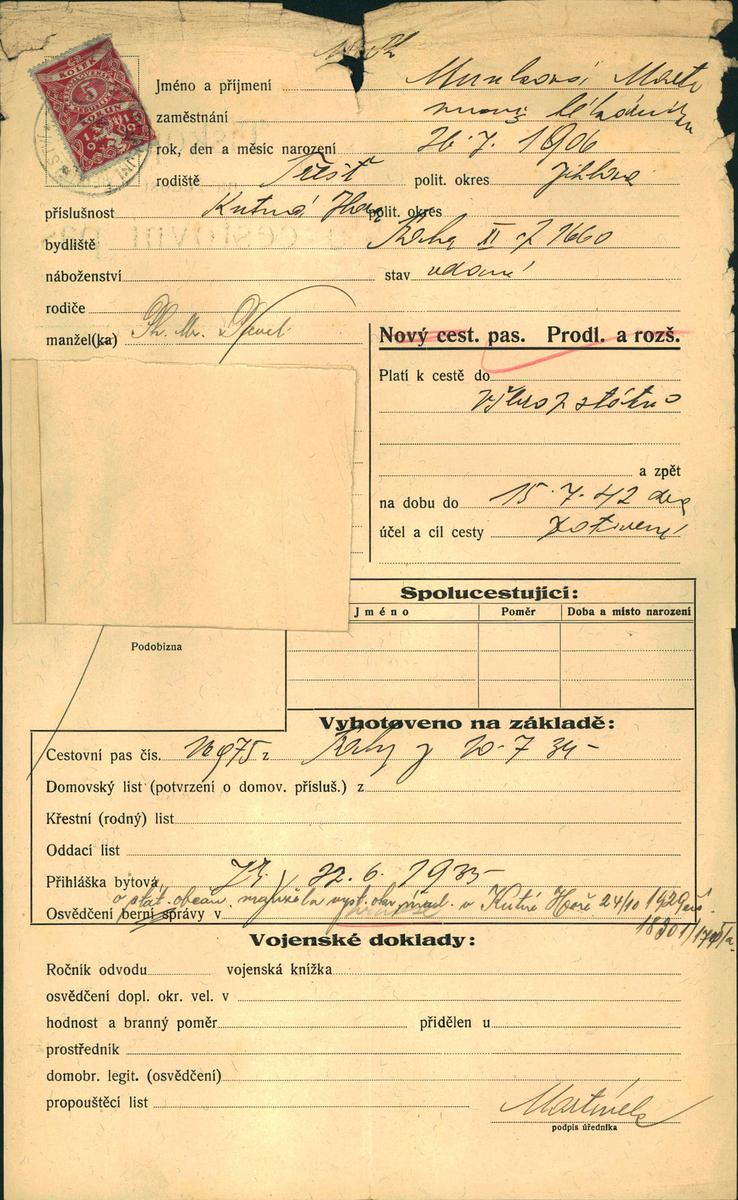 KOLEK
5
KORUN
Jméno a příjmení Munková Marta
zaměstnání
rok, den a měsíc narození 26.7.1906
rodiště Třešť polit. okres Jihlava
příslušnost Kutná Hora polit. okres
bydliště Praha XII 1660
náboženství stav vdaná
rodiče
manžel(ka) Ph. Mr. Pavel
Nový cest. pas. Prodl. a rozš.
Platí k cestě do
všech států
a zpět
na dobu do 15.7.42
účel a cíl cesty zotavení
Spolucestující:
Jméno Poměr Doba a místo narození
Podobizna
Vyhotoveno na základě:
Cestovní pas čís. Prahy z 20.7 34
Domovský list (potvrzení o domov. přísluš.) z
Křestní (rodný) list
Oddací list
Přihláška bytová 22.6.1935
o stát. občan. manžela vyst. okr. úřad. v Kutné Hoře 24/10 1929
Osvědčení berní správy v
Vojenské doklady:
Ročník odvodu vojenská knížka
osvědčení dopl. okr. vel. v
hodnost a branný poměr přidělen u
prostředník
domobr. legit. (osvědčení)
propouštěcí list
Martínek
podpis úředníka